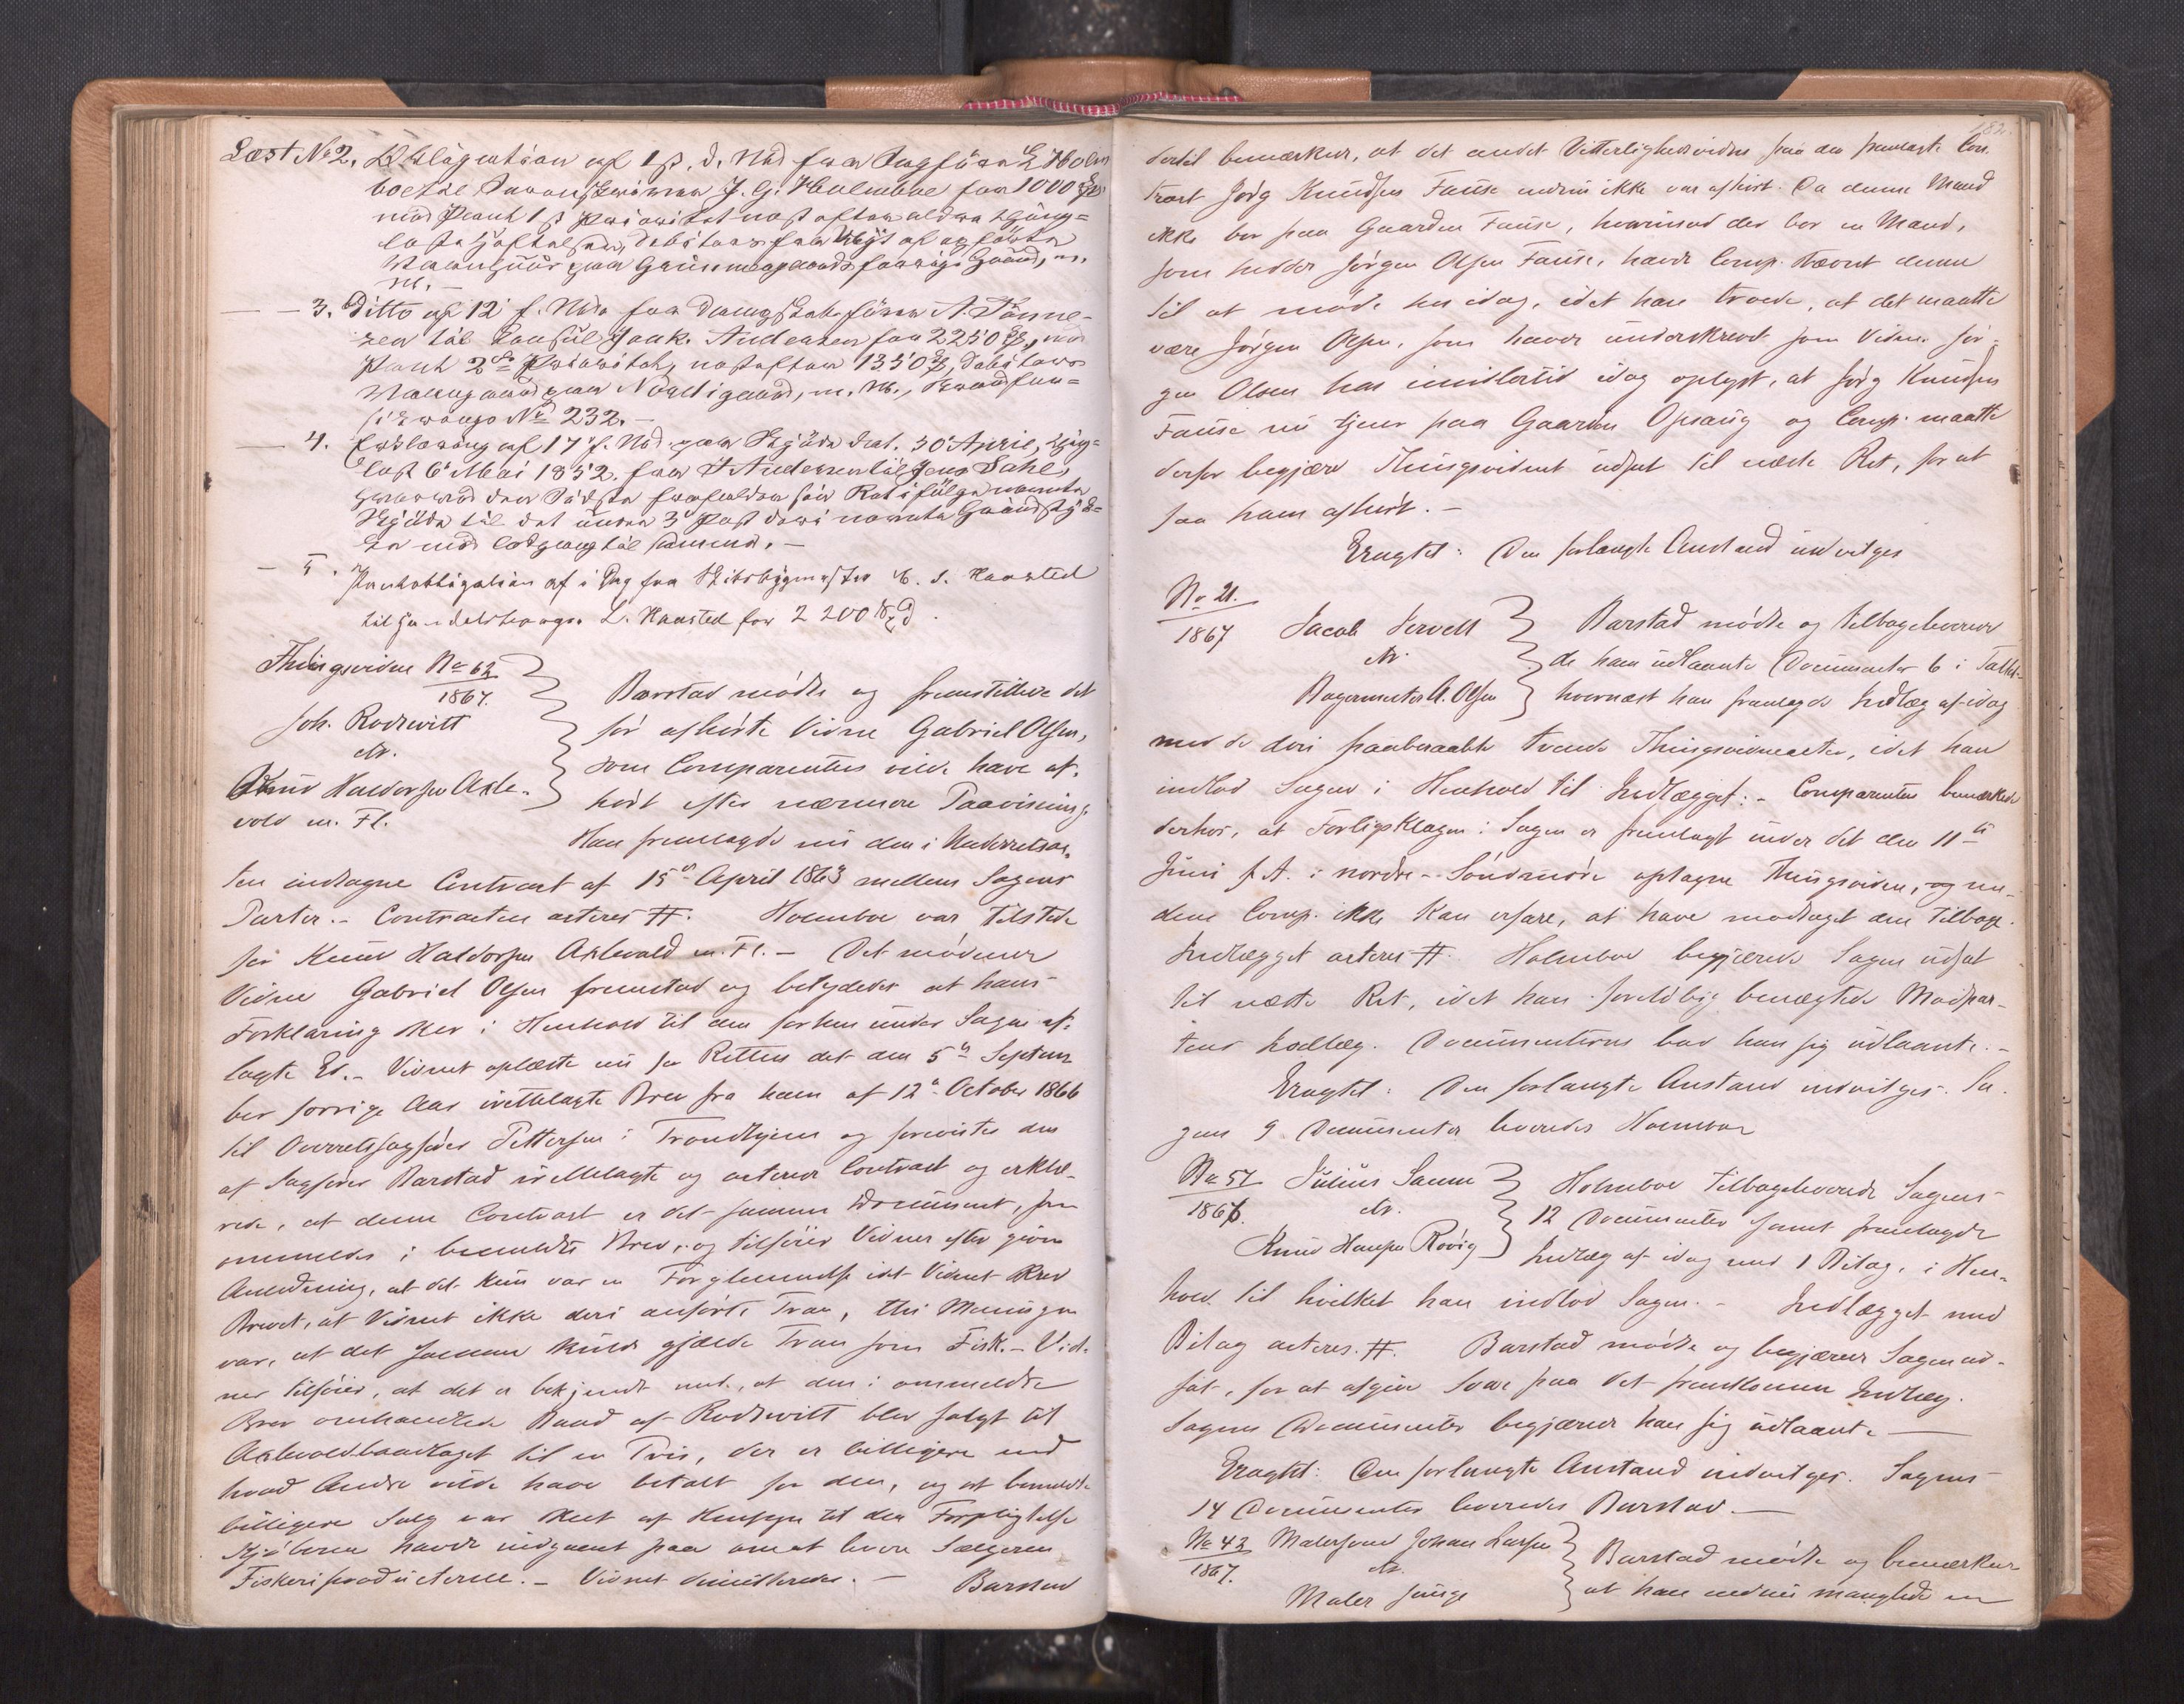 Læst No 2. Obligation af 1 s. d. Md fra Sagfører E Holm
boe til Proprietær J. G. Holmboe for 1000 Spd
med Pant 1 s Prioritet næst efter ældre thing-
læste Hæftelser, Debitors fra Nyt af opførte
Vaaningshuus paa Grimmergaards forrige Grund, m.
m. –
— 3. Ditto af 12 f. Md. fra Dampskibsfører A. Rønne-
ren til Consul Joak. Andersen for 2250 Spd, med
Pant 2den Prioritet, næst efter 1350 Spd, i Debitors
Vaaningsgaard paa Nørvigaard, m. m., Brandfor-
sikrings No 232. –
— 4. Erklæring af 17 f. Md. paa Skjøde dat. 30 April, thing-
læst 6 Mai 1852. fra A Andersen til Jens Dahl,
hvorved den Sidste frafalder sin Ret ifølge nævnte
Skjøde til det under 3 Post deri nævnte Grundstyk-
ke med Adgang til samme. –
— 5. Pantobligation af i Dag fra Skibsbygmester E. S. Hansted
til Handelsborger L. Hansted for 2200 Spd.
Thingsvidne No 62
1867.
Joh. Rodtwitt
ctr.
Knud Haldorsen Axle-
vold m. Fl.
Barstad mødte og fremstillede det
før afhørte Vidne Gabriel Olsen,
som Comparenten vilde have af-
hørt efter nærmere Paavisning.
Han fremlagde nu den i Underretsac-
ten indtagne Contract af 15de April 1863 mellem Sagens
Parter. – Contracten acteres #. Holmboe var tilstede
for Knud Haldorsen Axlevold m. Fl. – Det mødende
Vidne Gabriel Olsen fremstod og betydedes at hans
Forklaring sker i Henhold til den forhen under Sagen af-
lagte Ed. – Vidnet oplæste nu for Retten det den 5te Septem
ber forrige Aar irettelagte Brev fra ham af 12te October 1866
til Overretssagfører Pettersen i Trondhjem og forevistes den
af Sagfører Barstad irettelagte og acterede Contract og erklæ-
rede, at denne Contract er det samme Document, som
ommeldes i bemeldte Brev, og tilføier Vidnet efter given
Anledning, at det kun var en Forglemmelse idet Vidnet skrev
Brevet, at Vidnet ikke deri anførte Tran, thi Meningen
var, at det samme skulde gjælde Tran som Fisk. – Vid-
net tilføier, at det er bekjendt med, at den i ommeldte
Brev omhandlede Baad af Rodtwitt blev solgt til
Axlevoldbaadlaget til en Pris, der er billigere end
hvad Andre vilde have betalt for den, og at bemeldte
billigere Salg var skeet af Hensyn til den Forpligtelse
Kjøberen havde indgaaet paa om at levere Sælgeren
Fiskeriproducterne. – Vidnet dimitteredes. – Barstad
182.
dertil bemærkede, at det andet Vitterlighedsvidne paa den fremlagte Con-
tract Jørg Knudsen Fause endnu ikke var afhørt. Da denne Mand
ikke bor paa Gaarden Fause, hvorimod der bor en Mand,
som hedder Jørgen Olsen Fause, havde Comp. stævnt denne
til at møde her idag, idet han troede, at det maatte
være Jørgen Olsen, som havde underskrevet som Vidne. Jør-
gen Olsen har imidlertid idag oplyst, at Jørg Knudsen
Fause nu tjener paa Gaarden Opsaug og Comp. maatte
derfor begjære Thingsvidnet udsat til næste Ret, for at
faa ham afhørt. –
Eragtet: Den forlangte Anstand indvilges
No 21.
1867
Jacob Servell
ctr.
Bagermester A. Olsen
Barstad mødte og tilbageleverede
de ham udlaante Documenter 6 i Tallet
hvornæst han fremlagde Indlæg af idag
med de deri paaberaabte tvende Thingsvidneacter, idet han
indlod Sagen i Henhold til Indlægget. – Comparenten bemærkede
derhos, at Forligsklagen i Sagen er fremlagt under det den 11te
Juni f. A. i nordre Søndmøre optagne Thingsvidne, og me-
dens Comp. ikke kan erfare, at have modtaget den tilbage.
Indlægget acteres #. Holmboe begjærede Sagen udsat
til næste Ret, idet han foreløbig benægtede Modpar-
tens Indlæg. Documenterne bad han sig udlaante. –
Eragtet: Den forlangte Anstand indvilges. Sa-
gens 9 Documenter leveredes Holmboe
No 57
1866.
Julius Sanne
ctr.
Knud Hansen Røvig
Holmboe tilbageleverede Sagens
12 Documenter samt fremlagde
Indlæg af idag med 1 Bilag, i Hen-
hold til hvilket han indlod Sagen. – Indlægget med
Bilag acteres. #. Barstad mødte og begjærede Sagen ud-
sat, for at afgive Svar paa det fremkomne Indlæg.
Sagens Documenter begjærede han sig udlaante –
Eragtet: Den forlangte Anstand indvilges. Sagens
14 Documenter leveredes Barstad. –
No 42
1867.
Malersvend Johan Larsen
ctr.
Maler Junge
Barstad mødte og bemærkede
at han endnu manglede en